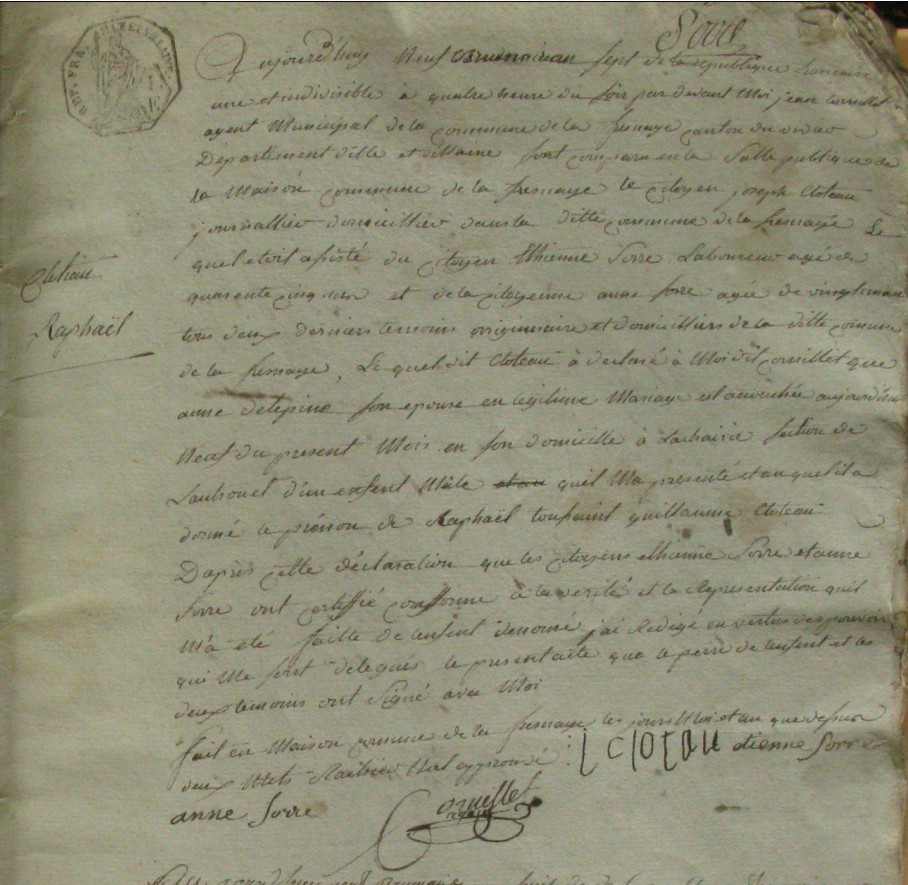 Sorre
REP. FRA.
Aujourd'huy Neuf sept de la republique francaise
une et indivisible a quatre heure du soir par devant Moi jean Corvillet
agent Municipal de la commune de la fresnaye canton du vivier
Departement dille et villaine sont comparu en la Salle publique de
la Maison commune de la fresnaye le citoyen joseph Cloteau
journallier domicillier dans la ditte commune de la fresnaye Le
quel etoit assisté du citoyen Ethienne Sorre Laboureur agé de
quarente cinq ans et de la citoyenne anne Sorre agée de
tous deux derniers temoins originaire et domicilliers de la ditte comune
de la fresnaye, Le quel dit Cloteau à déclaré à Moi dit Corvillet que
anne delepine son epouse en legitime Mariage est accouchée aujourdhui
Neuf du present Mois en son domicille à Lachairie section de
d'un enfent Mâle et au quil Ma presenté et au quel il a
donné le prénom de Raphaël toussaint guillaume Cloteau
Dapres cette déclaration que les citoyens ethienne Sorre et anne
Sorre ont certiffié conforme à la verité et la Representation quil
M'a été faitte de lenfent denomé j'ai Redigé en vertue des pouvoirs
qui Me sont delegués le present acte que le perre de lenfent et les
deux temoins ont Signé avec Moi
fait en Maison comune de la fresnaye les jours Moi et an que dessus
deux Mots Raturés Nul approuvé : J clotau etienne Sorre
anne Sorre
Corvillet
agent
Cloteau
Raphaël